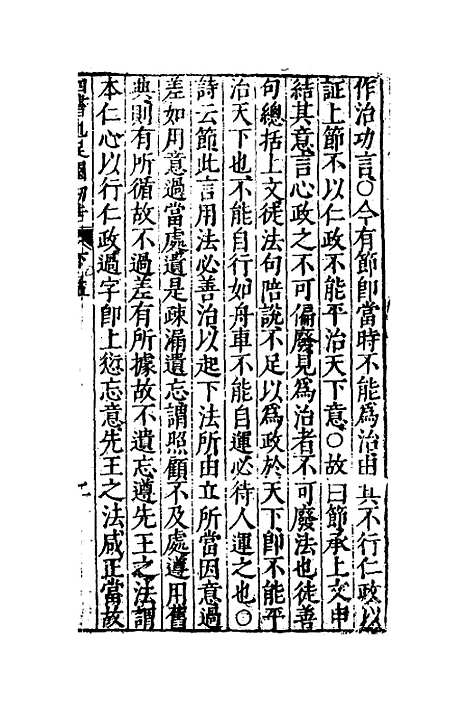 作治功言○今有節卽當時不能爲治由其不行仁政以
証上節不以仁政不能平治天下意○故曰節承上文申
結其意言心政之不可偏廢見爲治者不可廢法也徒善
句總括上文徒法句陪說不足以爲政於天下卽不能平
治天下也不能自行如舟車不能自運必待人運之也○
詩云節此言用法必善治以起下法所由立所當因意過
差如用意過當處遺是疎漏遺忘謂照顧不及處遵用舊
典則有所循故不過差有所據故不遺忘遵先王之法謂
本仁心以行仁政過字卽上愆忘意先王之法咸正當故
四書